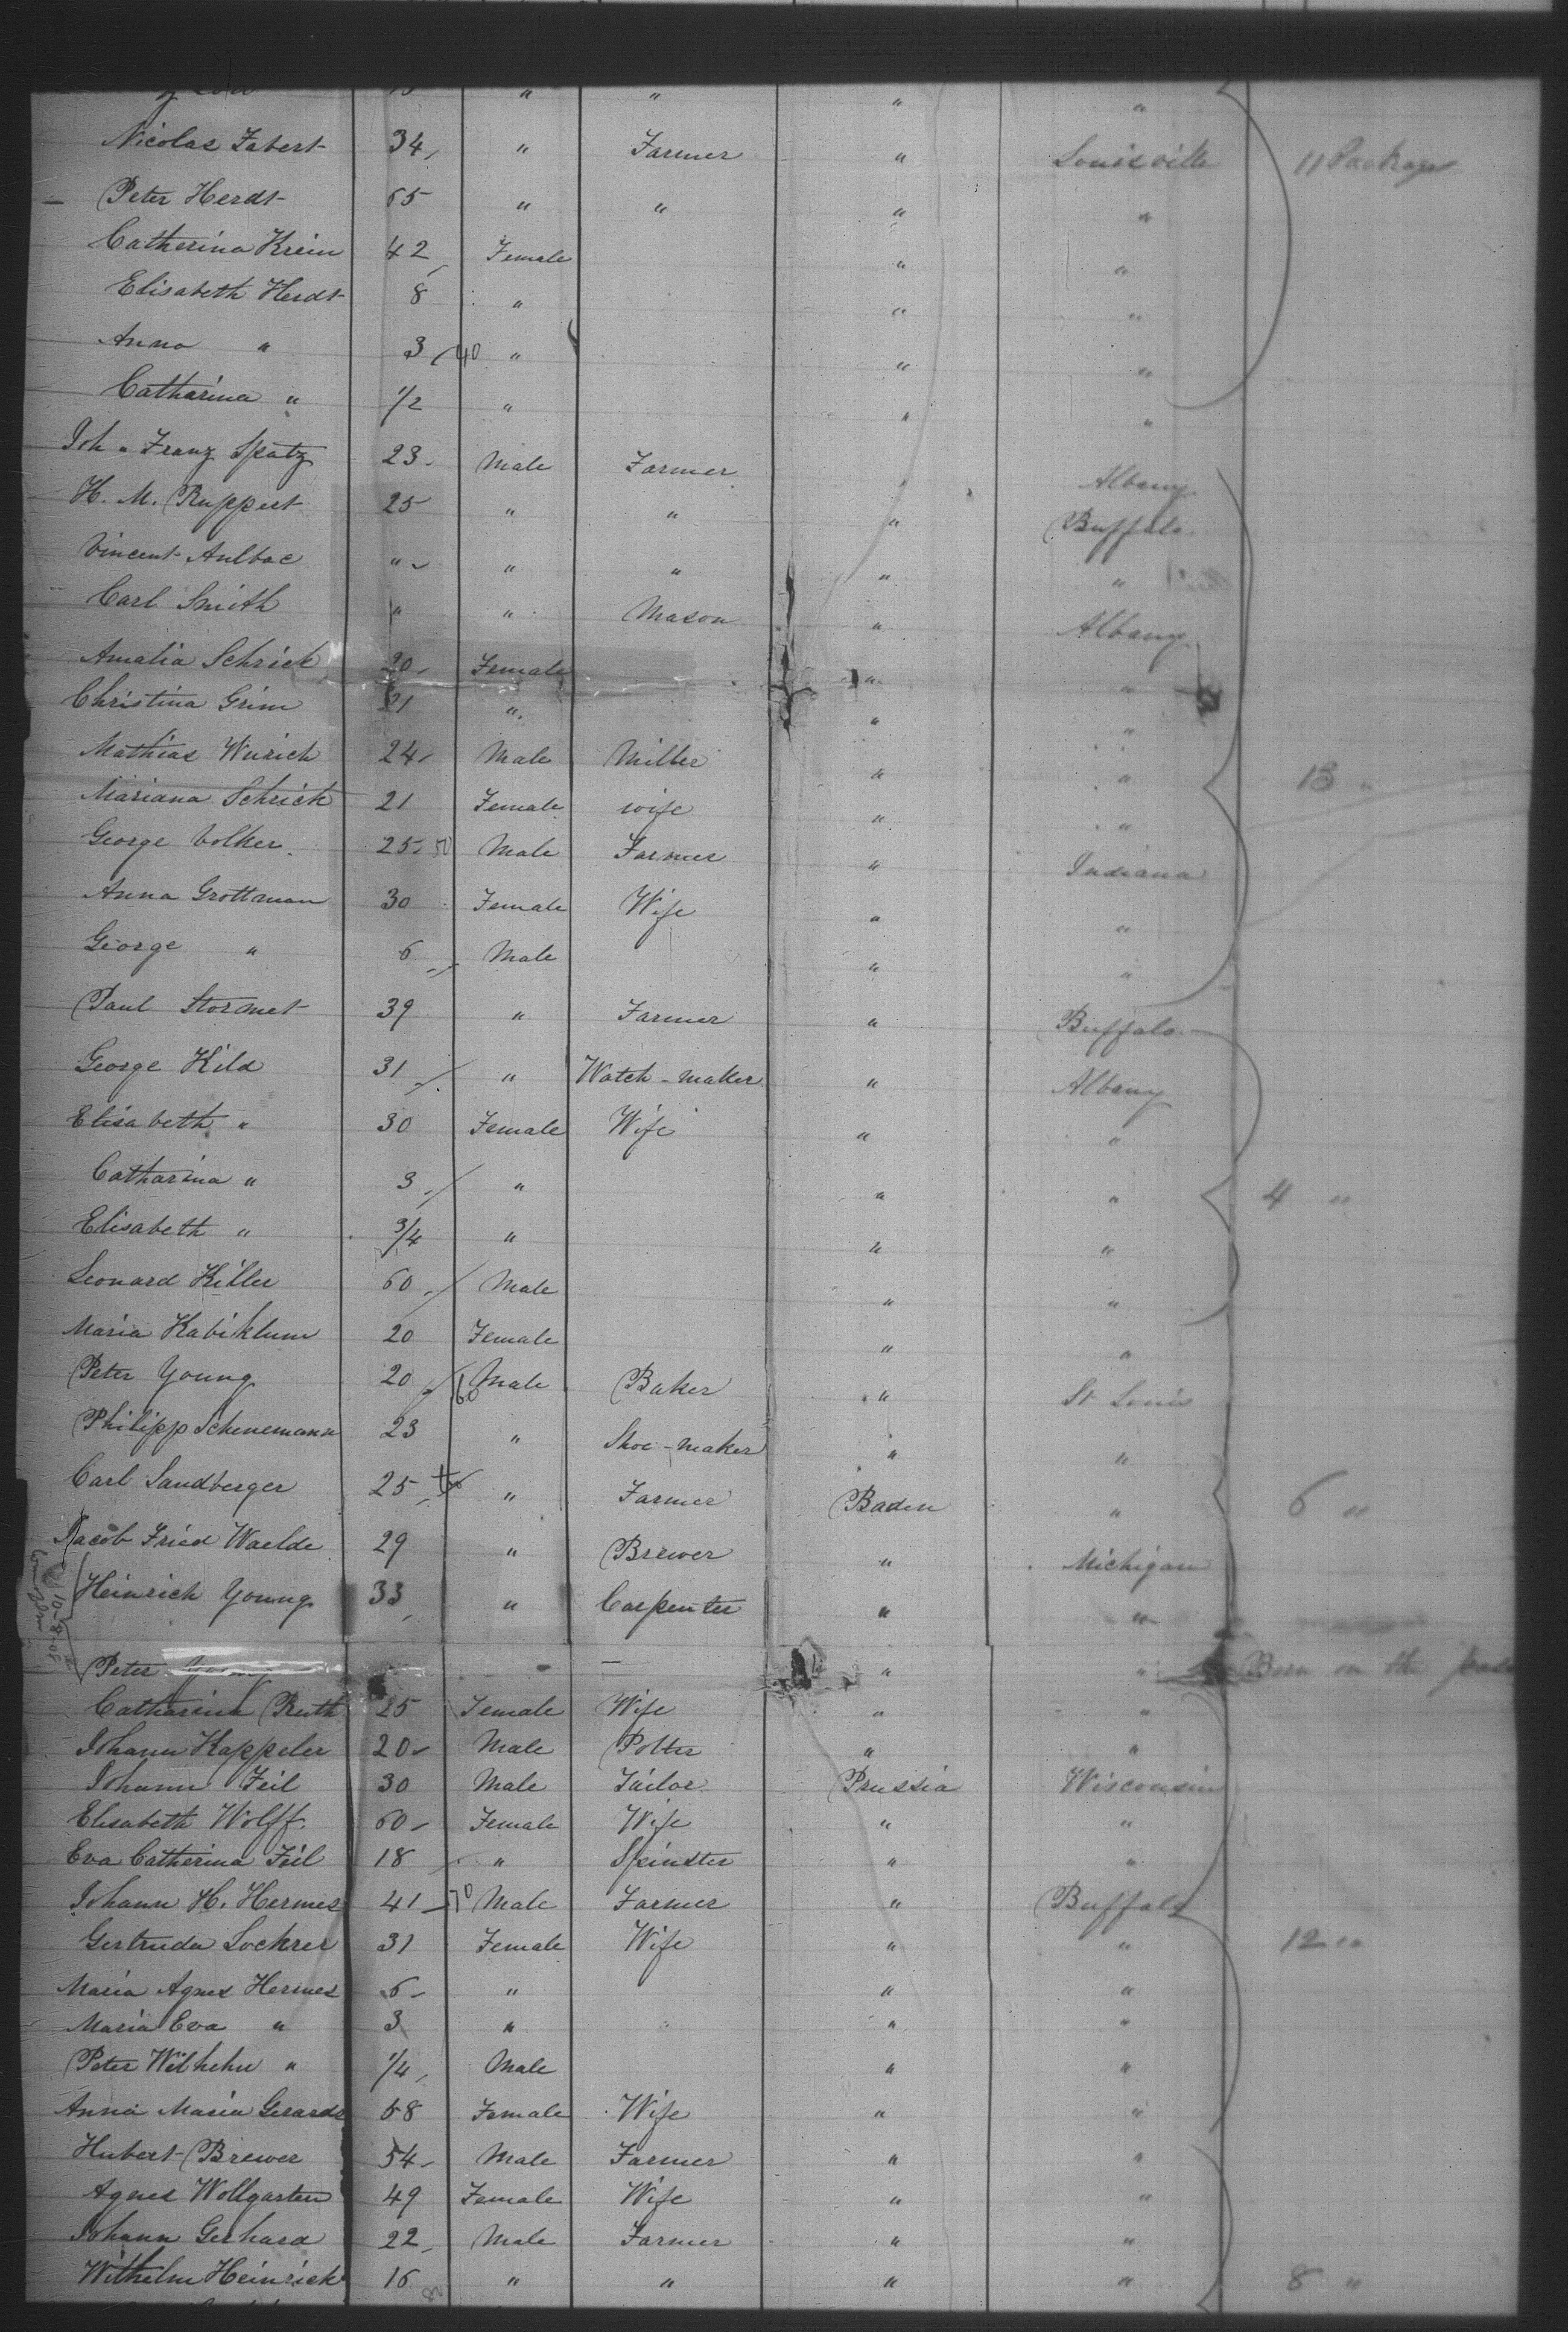 " " " "
Nicolas Zabert 34 " Farmer " Louisville 11 Packages
Peter Herdt 65 " " " "
Catherina Krein 42 Female " "
Elisabeth Herdt 8 " " "
Anna " 3 40 " " "
Catharina " 1/2 " " "
Joh. Franz Spatz 23 Male Farmer " Albany
H. M. Ruppert 25 " " " Buffalo
Vincent Aulbac " " " " "
Carl Smith " " Mason " Albany
Amalia Schrick 20 Female " "
Christina Grim 21 " " "
Mathias Wurich 24 Male Miller " " 13 "
Mariana Schrick 21 Female wife " "
George Volker 25 50 Male Farmer " Indiana
Anna Grottman 30 Female Wife " "
George " 6 Male " "
Paul Stormet 39 " Farmer " Buffalo
George Hild 31 " Watch-maker " Albany
Elisabeth " 30 Female Wife " "
Catharina " 3 " " " 4 "
Elisabeth " 3/4 " " "
Leonard Killer 60 Male " "
Maria Kabiklum 20 Female " "
Peter Young 20 60 Male Baker " St Louis
Philipp Schenemann 23 " Shoe-maker " "
Carl Sandberger 25 " Farmer Baden " 6 "
Jacob Fried Waelde 29 " Brewer " Michigan
Heinrich Young 33 " Carpenter " "
Peter — " " Born on the
Catharina Ruth 25 Female Wife " "
Johann Kappeler 20 Male Potter " "
Johann Feil 30 Male Tailor Prussia Wisconsin
Elisabeth Wolff 60 Female Wife " "
Eva Catherina Feil 18 " Spinster " "
Johann H. Hermes 41 70 Male Farmer " Buffalo
Gertruda Lochrer 31 Female Wife " " 12 "
Maria Agnes Hermes 6 " " "
Maria Eva " 3 " " "
Peter Wilhelm " 1/4 Male " "
Anna Maria Gerards 58 Female Wife " "
Hubert Brewer 54 Male Farmer " "
Agnes Wollgarten 49 Female Wife " "
Johann Gerhard 22 Male Farmer " "
Wilhelm Heinrich 16 " " " " 8 "